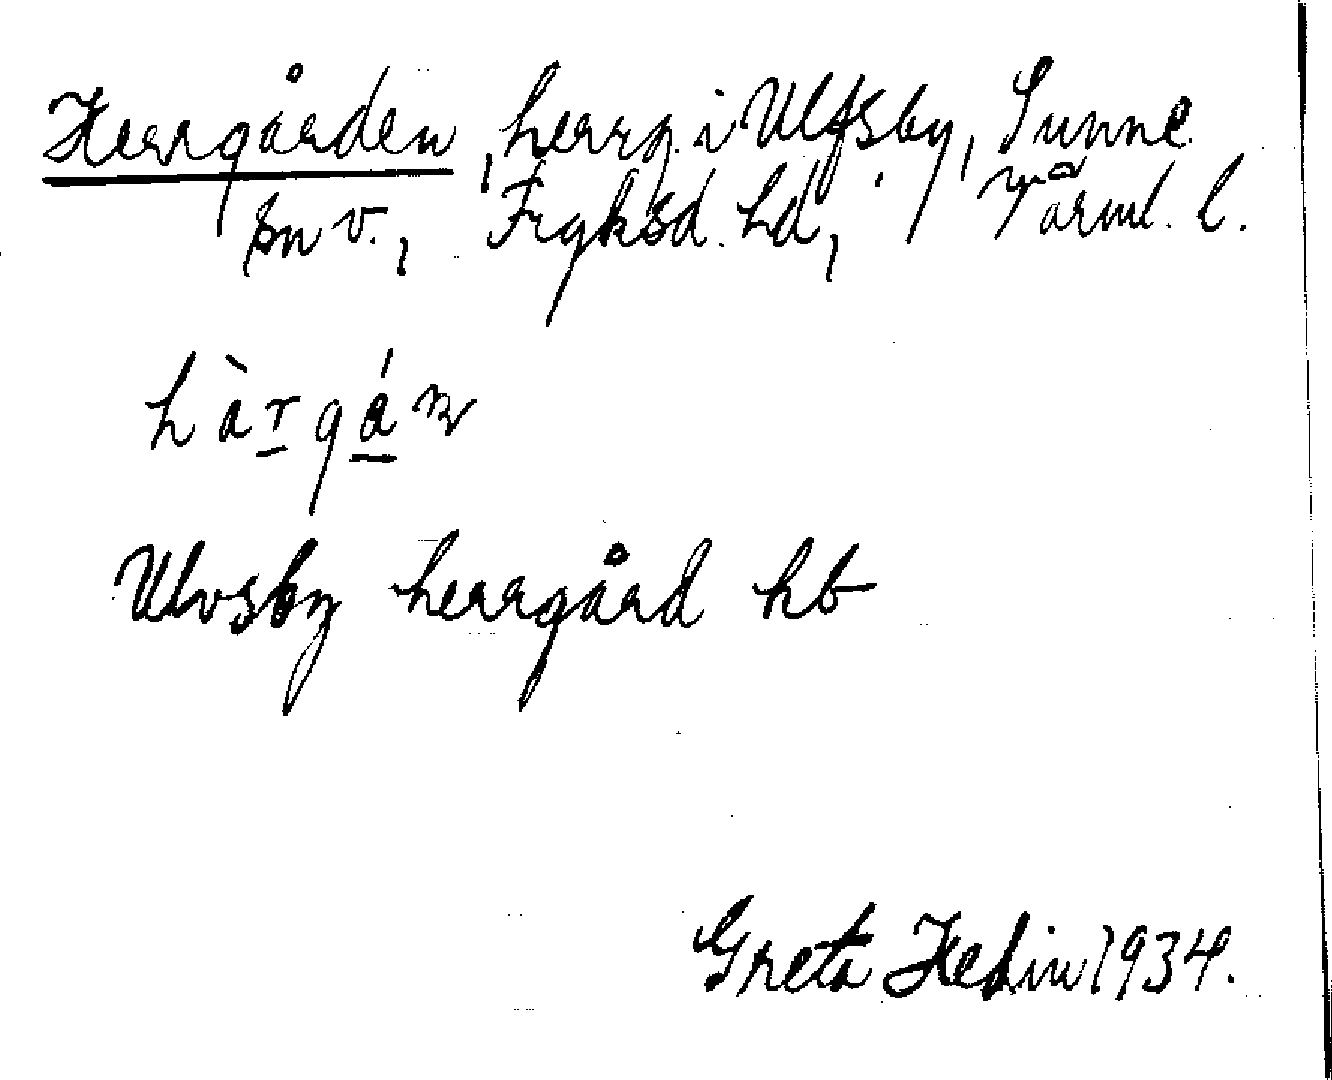 Herrgården, herrg. i Ulfsby, Sunne
sn v., Fryksd. hd, Värml. l.
hàrgá
Ulvsby herrgård hb
Greta Hedin 1934.